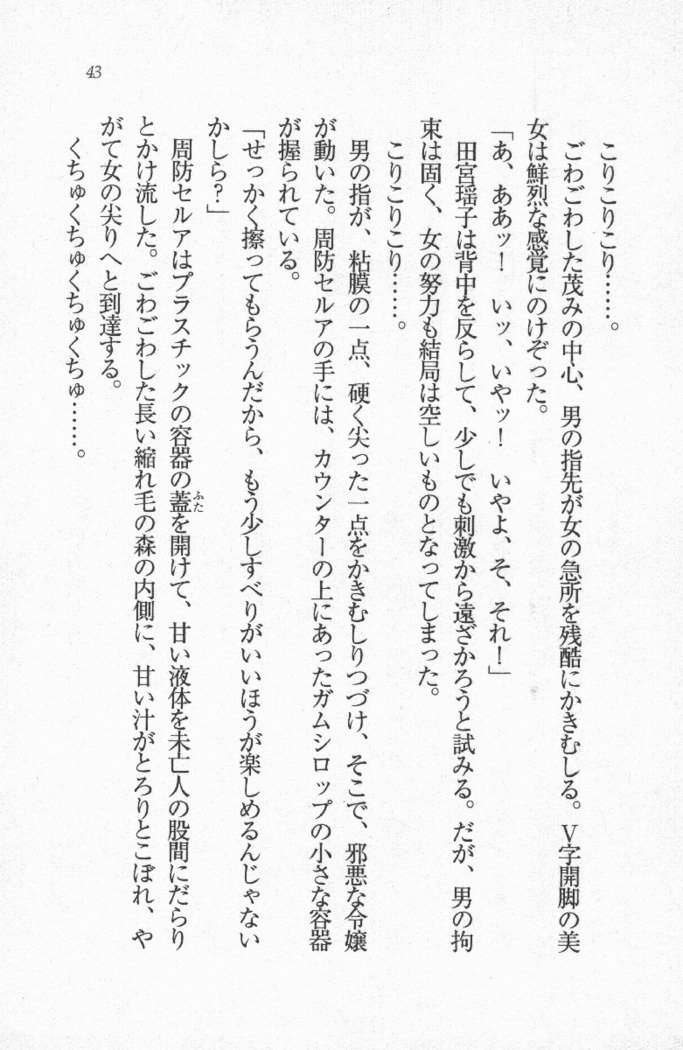 43
こりこりこり……。
ごわごわした茂みの中心、男の指先が女の急所を残酷にかきむしる。V字開脚の美
女は鮮烈な感覚にのけぞった。
「あ、ああッ！　いッ、いやッ！　いやよ、そ、それ！」
田宮瑶子は背中を反らして、少しでも刺激から遠ざかろうと試みる。だが、男の拘
束は固く、女の努力も結局は空しいものとなってしまった。
こりこりこり……。
男の指が、粘膜の一点、硬く尖った一点をかきむしりつづけ、そこで、邪悪な令嬢
が動いた。周防セルアの手には、カウンターの上にあったガムシロップの小さな容器
が握られている。
「せっかく擦ってもらうんだから、もう少しすべりがいいほうが楽しめるんじゃない
かしら？」
周防セルアはプラスチックの容器の蓋ふたを開けて、甘い液体を未亡人の股間にだらり
とかけ流した。ごわごわした長い縮れ毛の森の内側に、甘い汁がとろりとこぼれ、や
がて女の尖りへと到達する。
くちゅくちゅくちゅくちゅ……。